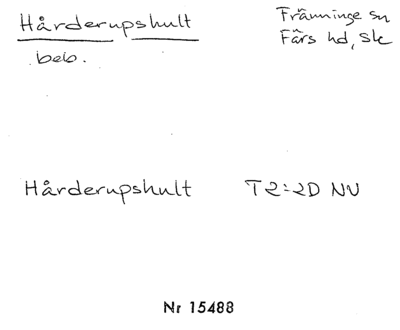 Hårderupshult
Fränninge sn
Färs hd, Sk
beb.
Hårderupshult T2:2D NV
Nr 15488